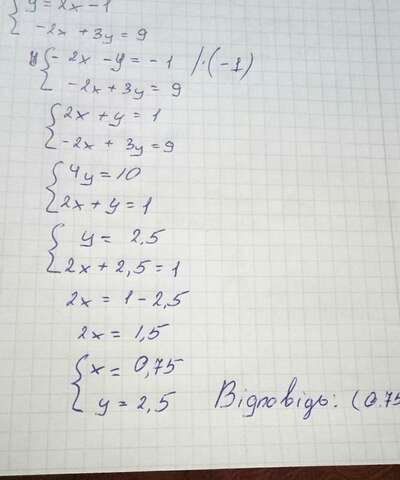 y = 2x - 1
-2x + 3y = 9
- 2x - y = - 1 / · (-1)
-2x + 3y = 9
2x + y = 1
-2x + 3y = 9
4y = 10
2x + y = 1
y = 2,5
2x + 2,5 = 1
2x = 1 - 2,5
2x = 1,5
x = 0,75
y = 2,5 Відповідь: (0.75